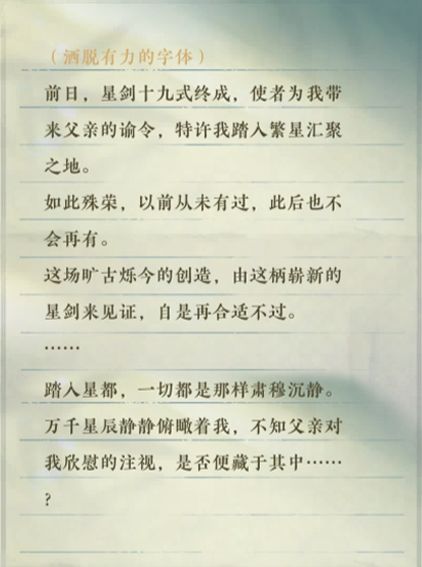 （洒脱有力的字体）
前日，星剑十九式终成，使者为我带
来父亲的谕令，特许我踏入繁星汇聚
之地。
如此殊荣，以前从未有过，此后也不
会再有。
这场旷古烁今的创造，由这柄崭新的
星剑来见证，自是再合适不过。
……
踏入星都，一切都是那样肃穆沉静。
万千星辰静静俯瞰着我，不知父亲对
我欣慰的注视，是否便藏于其中……
？